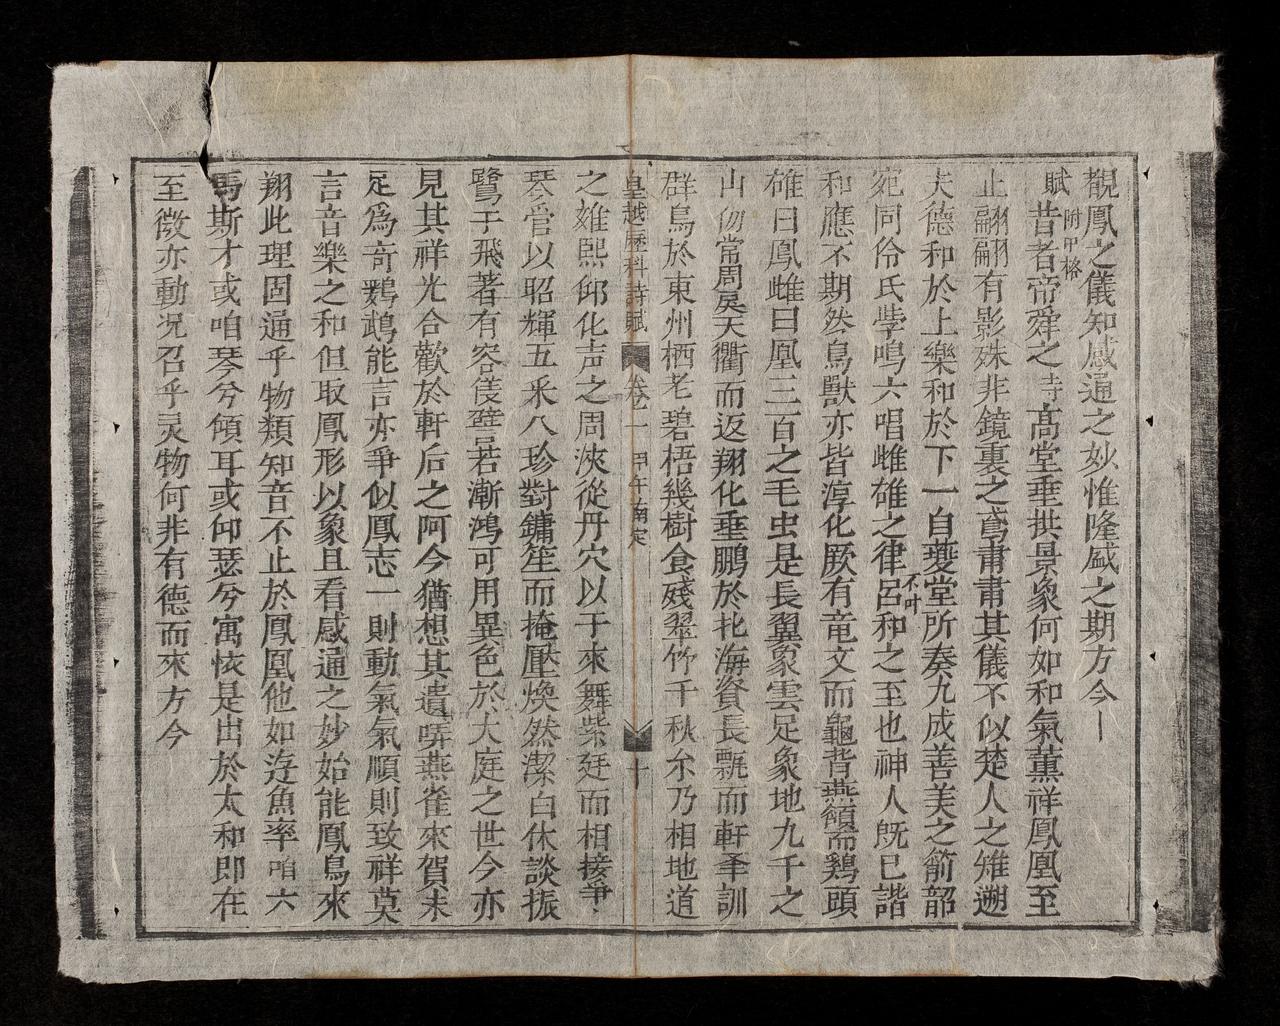 觀鳳之儀知感通之妙惟隆盛之期方今丨
賦 附甲格 昔者帝舜之 寺 高堂垂拱景象何如和氣薰祥鳳凰至
止翩翩有影殊非鏡裏之鸞肅肅其儀不似楚人之雉遡
夫德和於上樂和於下一自夔堂所奏九成善美之箾韶
宛同伶氏學鳴六唱雌雄之律呂 不叶 和之至也神人既已諧
和應不期然鳥獸亦皆淳化厥有竜文而龜背燕頷而鷄頭
雄曰鳳雌曰凰三百之毛虫是長翼象雲足象地九千之
山仞常周戾天衢而返翔化垂鵬於北海資長飄而軒羊訓
群鳥於東州栖老碧梧幾樹食殘翠竹千秋尒乃相地道
皇越歷科詩賦 卷一 甲午南定 二
之雉熙仰化声之周浹從丹穴以于來舞紫廷而相接爭
琴管以昭輝五采八珍對鏞笙而掩壓煥然潔白休談振
鷺于飛著有容儀 若漸鴻可用異色於大庭之世今亦
見其祥光合歡於軒后之阿今猶想其遺 燕雀來賀未
足爲奇鸚鵡能言亦爭似鳳志一則動氣氣順則致祥莫
言音樂之和但取鳳形以象且看感通之妙始能鳳鳥來
翔此理固通乎物類知音不止於鳳凰他如 魚率咱六
馬斯才或咱琴兮傾耳或仰瑟兮寓 是出於太和即在
至微亦動况召乎灵物何非有德而來方今